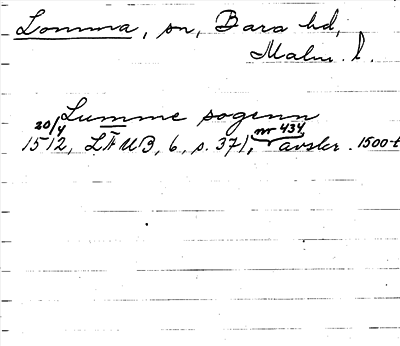 Lomma, sn, Bara hd,
Malm. l.
Lumme sogenn
20/4 nr 434
1512, LÄUB, 6, s. 371, avskr. 1500-t